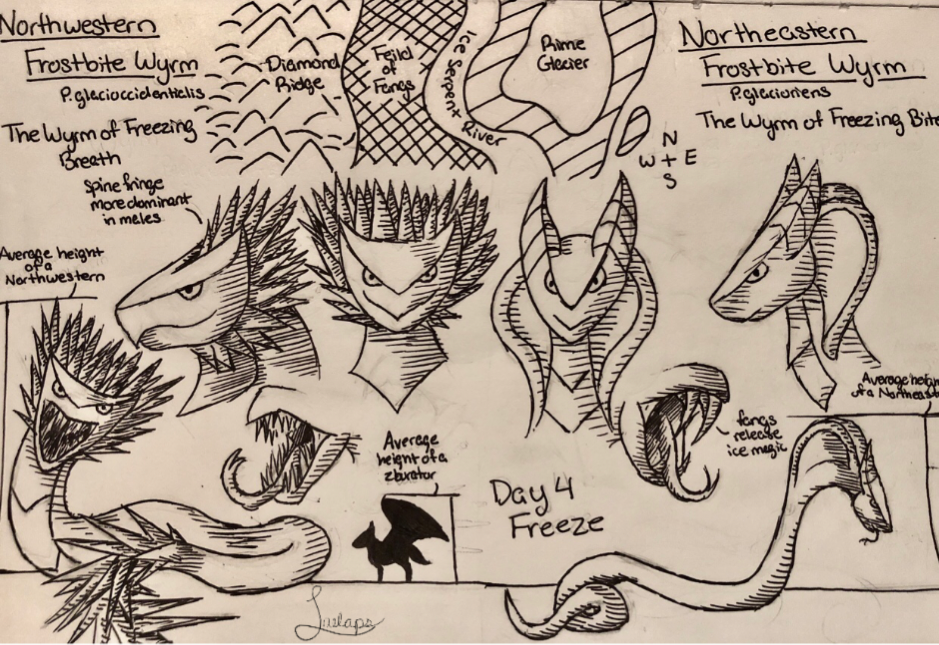 Northwestern
Frostbite Wyrm
P. glacioccidentalis
The Wyrm of Freezing
Breath
Spine fringe
more dominant
in males
Average height
of a
Northwestern
Diamond
Ridge
Feild
of
Fangs
Ice Serpent River
Rime
Glacier
N
W + E
S
Northeastern
Frostbite Wyrm
P. glacioriens
The Wyrm of Freezing Bite
Average height
of a
zburator
fangs
release
ice magic
Average height
of a Northeastern
Day 4
Freeze